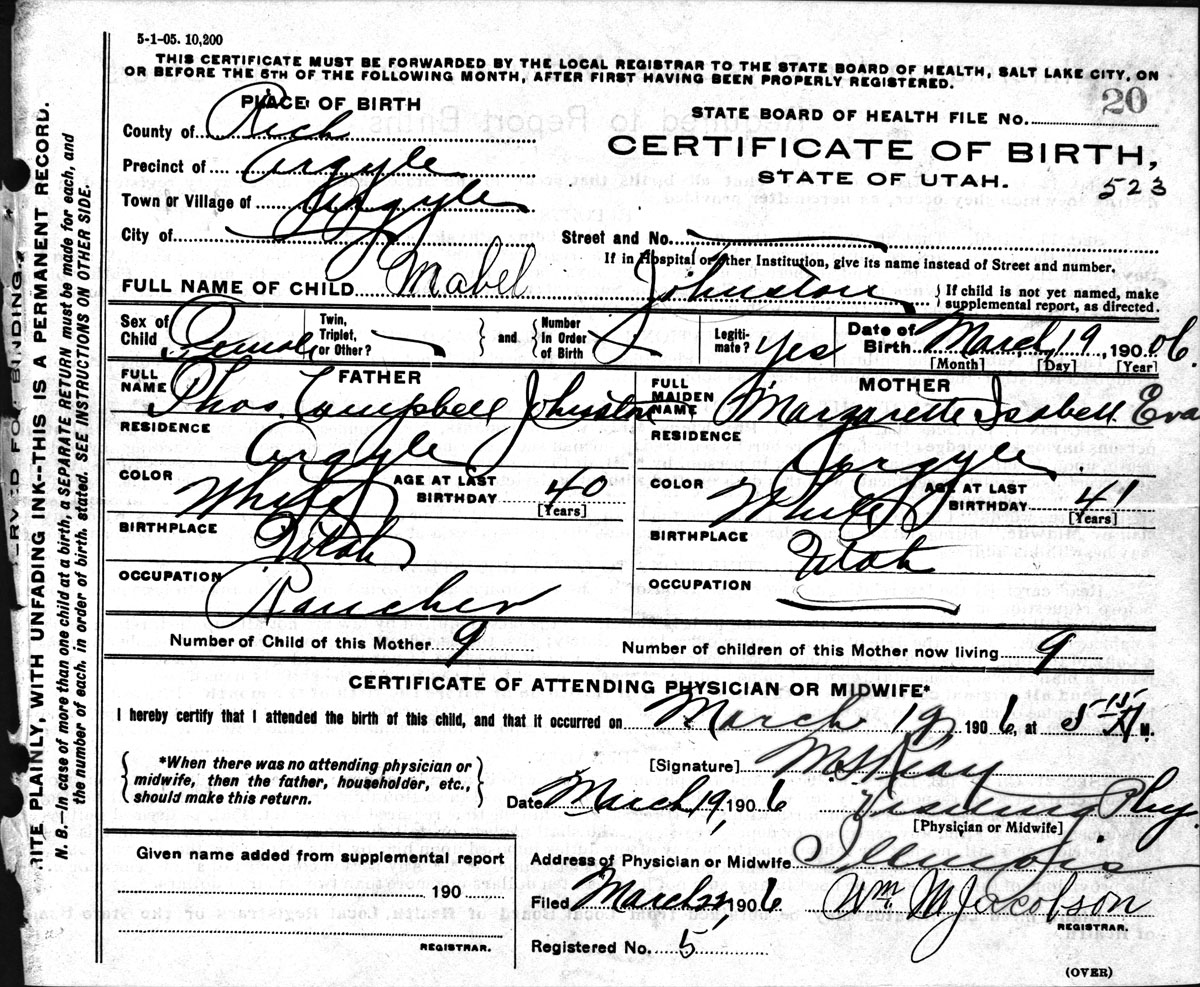 5-1-05. 10,200
THIS CERTIFICATE MUST BE FORWARDED BY THE LOCAL REGISTRAR TO THE STATE BOARD OF HEALTH, SALT LAKE CITY, ON
OR BEFORE THE 5TH OF THE FOLLOWING MONTH, AFTER FIRST HAVING BEEN PROPERLY REGISTERED.
20
PLACE OF BIRTH
STATE BOARD OF HEALTH FILE NO.
County of Rich
CERTIFICATE OF BIRTH,
Precinct of Argyle
STATE OF UTAH.
523
Town or Village of Argyle
City of
Street and No.
If in Hospital or other Institution, give its name instead of Street and number.
FULL NAME OF CHILD Mabel Johnston
{ If child is not yet named, make
supplemental report, as directed.
Sex of Child Female
Twin, Triplet, or Other?
} and {
Number in Order of Birth
Legiti-mate? Yes
Date of Birth March 19, 190 06.
[Month] [Day] [Year]
FATHER
FULL NAME Thos. Campbell Johnston
MOTHER
FULL MAIDEN NAME Margarette Isabell Eva
RESIDENCE Argyle
RESIDENCE Argyle
COLOR White AGE AT LAST BIRTHDAY 40
[Years]
COLOR White AGE AT LAST BIRTHDAY 41
[Years]
BIRTHPLACE Utah
BIRTHPLACE Utah
OCCUPATION Rancher
OCCUPATION
Number of Child of this Mother 9
Number of children of this Mother now living 9
CERTIFICATE OF ATTENDING PHYSICIAN OR MIDWIFE*
I hereby certify that I attended the birth of this child, and that it occurred on March 19 190 6, at 5-15 A M.
{ *When there was no attending physician or
midwife, then the father, householder, etc.,
should make this return. }
[Signature]
Date March 19, 190 6
Visiting Phy.
[Physician or Midwife]
Given name added from supplemental report
190
REGISTRAR.
Address of Physician or Midwife Illinois
Filed March 190 6 Wm. M Jacobson
REGISTRAR.
Registered No. 5
(OVER)
RITE PLAINLY, WITH UNFADING INK--THIS IS A PERMANENT RECORD.
N. B.--In case of more than one child at a birth, a SEPARATE RETURN must be made for each, and
the number of each, in order of birth, stated. SEE INSTRUCTIONS ON OTHER SIDE.
RVED FOR BINDING.